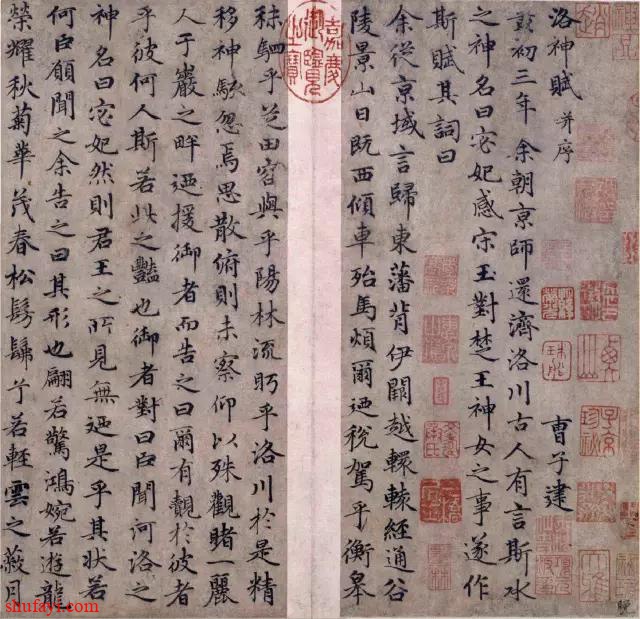 洛神賦 并序 曹子建
初三年余朝京師還濟洛川古人有言斯水
之神名曰宓妃感宋玉對楚王神女之事遂作
斯賦其詞曰
余從京域言歸東藩背伊闕越轘轅經通谷
陵景山日既西傾車殆馬煩爾迺稅駕乎衡皋
秣駟乎芝田容與乎陽林流眄乎洛川於是精
移神駭忽焉思散俯則未察仰以殊觀睹一麗
人于巖之畔迺援御者而告之曰爾有覿於彼者
乎彼何人斯若此之豔也御者對曰臣聞河洛之
神名曰宓妃然則君王之所見無迺是乎其狀若
何臣願聞之余告之曰其形也翩若驚鴻婉若遊龍
榮耀秋菊華茂春松髣髴兮若輕雲之蔽月
嘉慶御覽之寶
shufayi.com